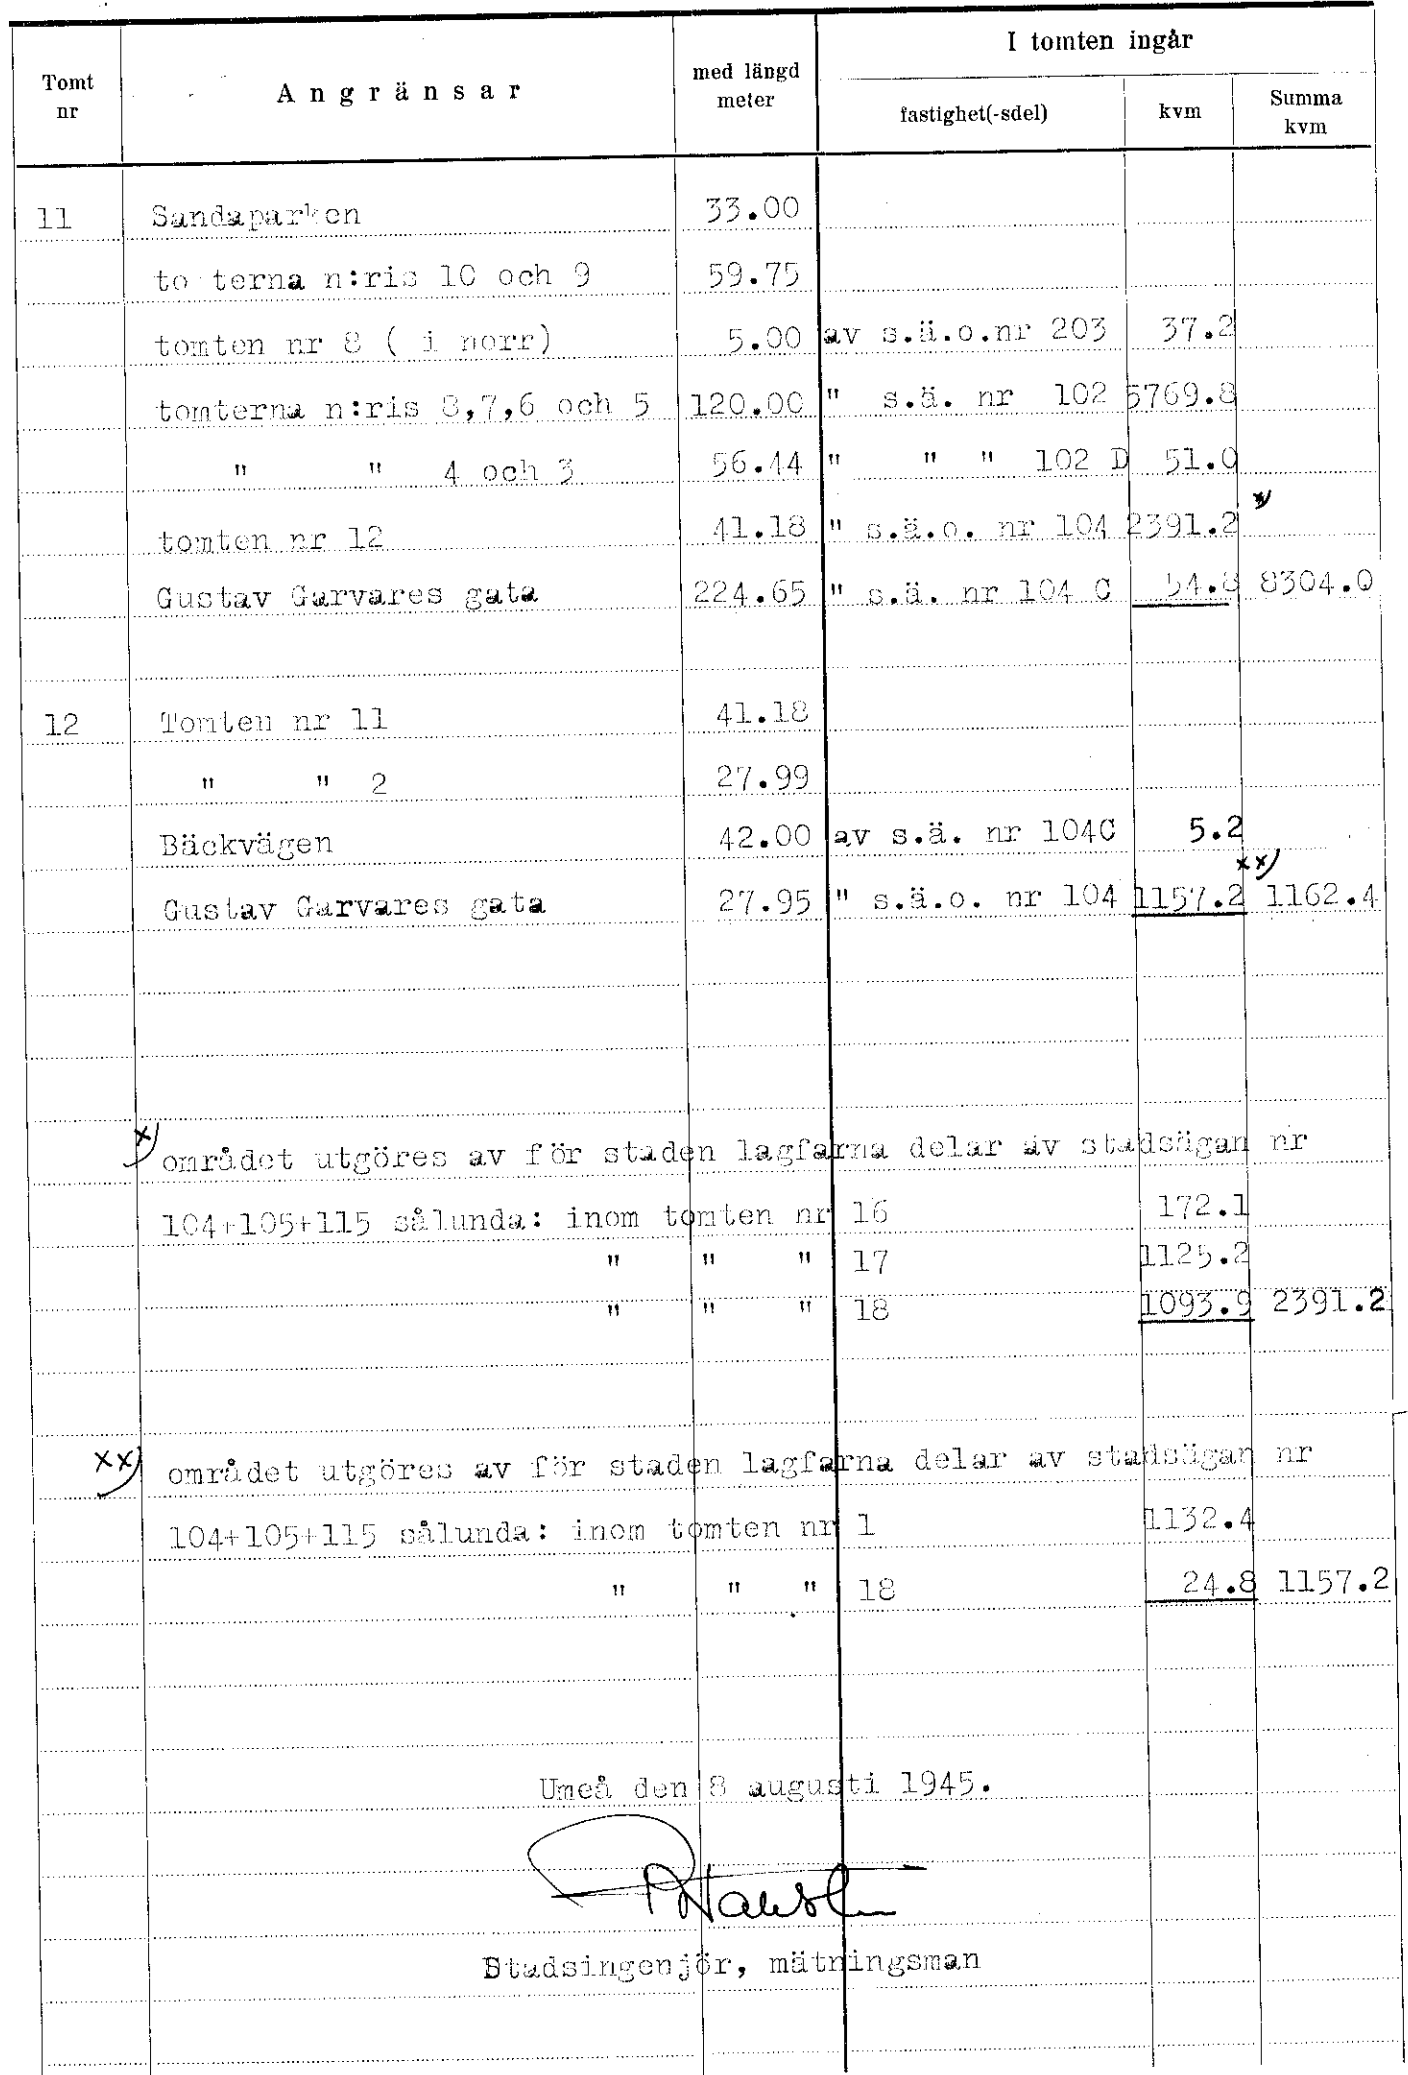 Tomt nr Angränsar med längd meter I tomten ingår
fastighet(-sdel) kvm Summa kvm
11 Sandaparken 33.00
to terna n:ris 10 och 9 59.75
tomten nr 8 ( i norr) 5.00 av s.ä.o.nr 203 37.2
tomterna n:ris 8,7,6 och 5 120.00 " s.ä. nr 102 5769.8
" " 4 och 3 56.44 " " " 102 D 51.0
tomten nr 12 41.18 " s.ä.o. nr 104 2391.2 x)
Gustav Garvares gata 224.65 " s.ä. nr 104 C 54.8 8304.0
12 Tomten nr 11 41.18
" " 2 27.99
Bäckvägen 42.00 av s.ä. nr 104C 5.2
Gustav Garvares gata 27.95 " s.ä.o. nr 104 1157.2 xx) 1162.4
x) området utgöres av för staden lagfarna delar av stadsägan nr
104+105+115 sålunda: inom tomten nr 16 172.1
" " " 17 1125.2
" " " 18 1093.9 2391.2
xx) området utgöres av för staden lagfarna delar av stadsägan nr
104+105+115 sålunda: inom tomten nr 1 1132.4
" " " 18 24.8 1157.2
Umeå den 8 augusti 1945.
Stadsingenjör, mätningsman